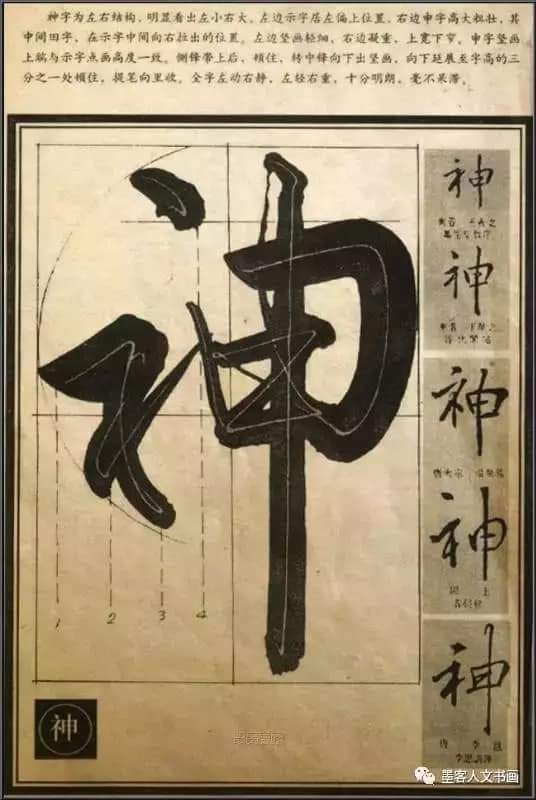 神字为左右结构，明显看出左小右大。左边示字居左偏上位置，右边申字高大粗壮，其
中间田字，在示字中间向右拉出的位置。左边竖画轻细，右边凝重，上宽下窄。申字竖画
上端与示字点画高度一致。侧锋带上后，顿住，转中锋向下出竖画，向下延展至字高的三
分之一处顿住，提笔向里收。全字左动右静，左轻右重，十分明朗，毫不呆滞。
神
神
神
神
神
神
1 2 3 4
神
墨客人文书画